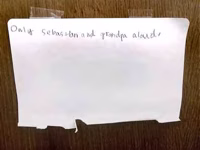 Only sebastian and grandpa alard.